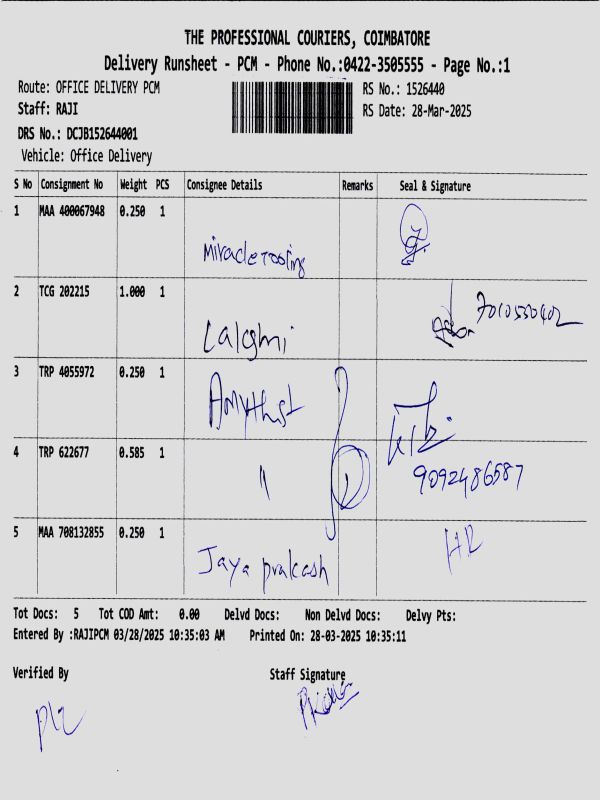 THE PROFESSIONAL COURIERS, COIMBATORE
Delivery Runsheet - PCM - Phone No.:0422-3505555 - Page No.:1
Route: OFFICE DELIVERY PCM
RS No.: 1526440
Staff: RAJI
RS Date: 28-Mar-2025
DRS No.: DCJB152644001
Vehicle: Office Delivery
S No Consignment No Weight PCS Consignee Details Remarks Seal & Signature
1 MAA 400067948 0.250 1
Miracle Tooling
2 TCG 202215 1.000 1
7010550402
Lalghmi
3 TRP 4055972 0.250 1
Amythist
4 TRP 622677 0.585 1
" 9092486587
5 MAA 708132855 0.250 1
HR
Jaya prakash
Tot Docs: 5 Tot COD Amt: 0.00 Delvd Docs: Non Delvd Docs: Delvy Pts:
Entered By :RAJIPCM 03/28/2025 10:35:03 AM Printed On: 28-03-2025 10:35:11
Verified By Staff Signature